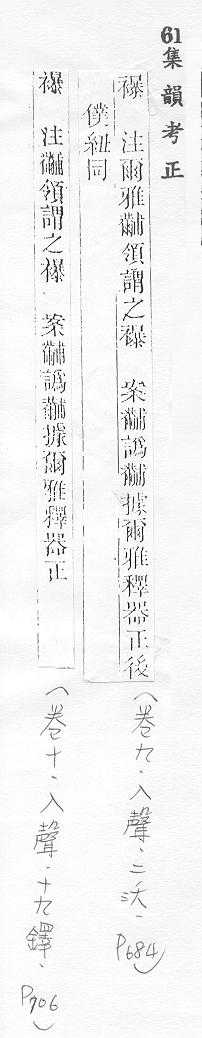 61集韻考正
襮 注爾雅黼領謂之襮 案黼譌黼據爾雅釋器正後
僕紐同
(卷九、入聲、二沃、P684)
襮 注黼領謂之襮 案黼譌黼據爾雅釋器正
(卷十、入聲、十九鐸、P706)